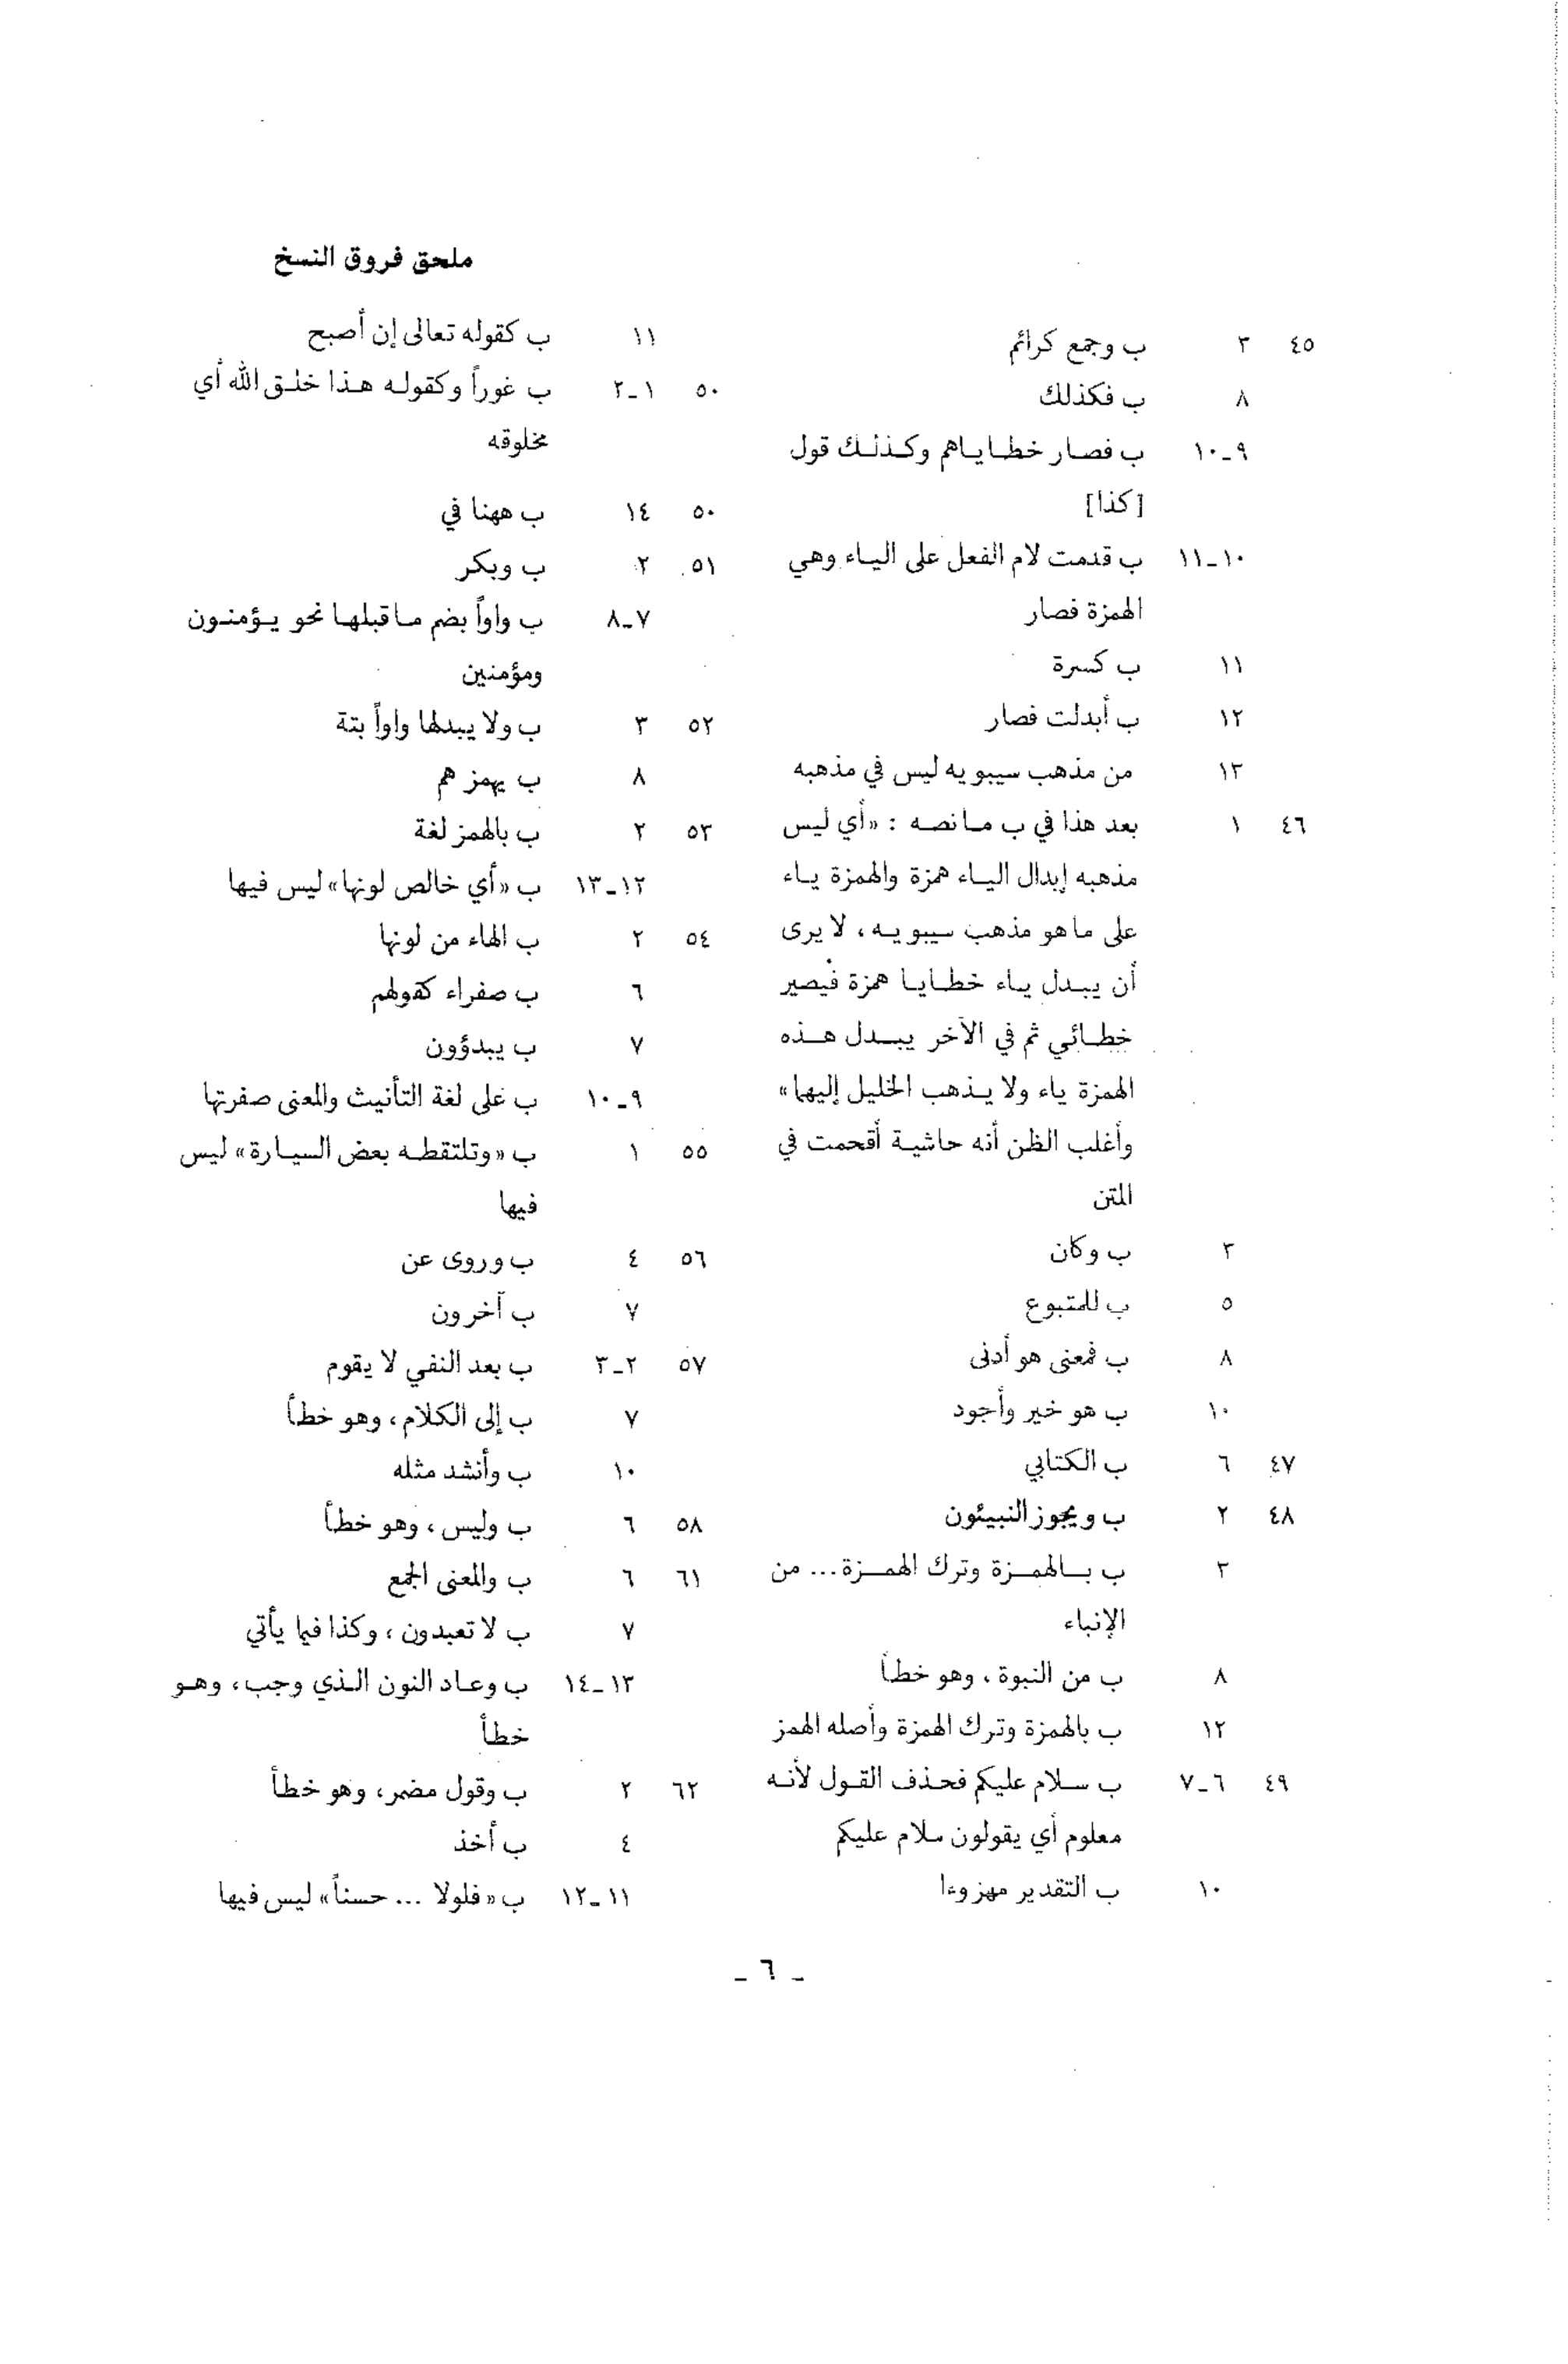 ملحق فروق النسخ
٤٥ ٣ ب وجمع كرائم
٨ ب فكذلك
٩_١٠ ب فصار خطاياهم وكذلك قول
[كذا]
١٠_١١ ب قدمت لام الفعل على الياء وهي
الهمزة فصار
١١ ب كسرة
١٢ ب أبدلت فصار
١٣ من مذهب سيبويه ليس في مذهبه
٤٦ ١ بعد هذا في ب مانصه : «أي ليس
مذهبه إبدال الياء همزة والهمزة ياء
على ماهو مذهب سيبويه، لا يرى
أن يبدل ياء خطايا همزة فيصير
خطائي ثم في الآخر يبدل هذه
الهمزة ياء ولا يذهب الخليل إليها»
وأغلب الظن أنه حاشية أقحمت في
المتن
٣ ب وكان
٥ ب للمتبوع
٨ ب فمعنى هو أدنى
١٠ ب هو خير وأجود
٤٧ ٦ ب الكتابي
٤٨ ٢ ب ويجوز النبيئون
٣ ب بالهمزة وترك الهمزة... من
الإنباء
٨ ب من النبوة، وهو خطأ
١٢ ب بالهمزة وترك الهمزة وأصله الهمز
٤٩ ٦_٧ ب سلام عليكم فحذف القول لأنه
معلوم أي يقولون سلام عليكم
١٠ ب التقدير مهزوءا
١١ ب كقوله تعالى إن أصبح
٥٠ ١_٢ ب غوراً وكقوله هذا خلق الله أي
مخلوقه
٥٠ ١٤ ب ههنا في
٥١ ٢ ب وبكر
٧_٨ ب واواً بضم ماقبلها نحو يؤمنون
ومؤمنين
٥٢ ٣ ب ولا يبدلها واواً بتة
٨ ب يهمز هم
٥٣ ٢ ب بالهمز لغة
١٢_١٣ ب «أي خالص لونها» ليس فيها
٥٤ ٢ ب الهاء من لونها
٦ ب صفراء كقولهم
٧ ب يبدؤون
٩_١٠ ب على لغة التأنيث والمعنى صفرتها
٥٥ ١ ب «وتلتقطه بعض السيارة» ليس
فيها
٥٦ ٤ ب وروى عن
٧ ب آخرون
٥٧ ٢_٣ ب بعد النفي لا يقوم
٧ ب إلى الكلام، وهو خطأ
١٠ ب وأنشد مثله
٥٨ ٦ ب وليس، وهو خطأ
٦١ ٦ ب والمعنى الجمع
٧ ب لا تعبدون، وكذا فيما يأتي
١٣_١٤ ب وعاد النون الذي وجب، وهو
خطأ
٦٢ ٢ ب وقول مضمر، وهو خطأ
٤ ب أخذ
١١_١٢ ب «فلولا ... حسناً» ليس فيها
_ ٦ _